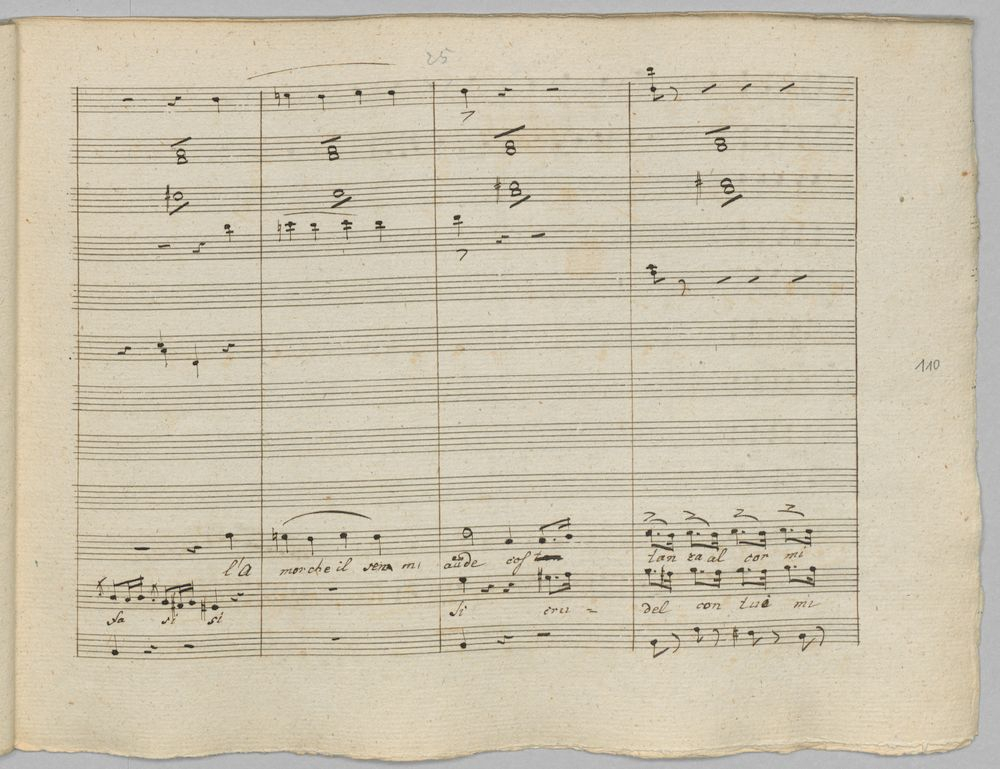 25
110
l'A mor che il sen mi aude cost tan za al cor mi
fa si si Si cru = del con tuoi mi